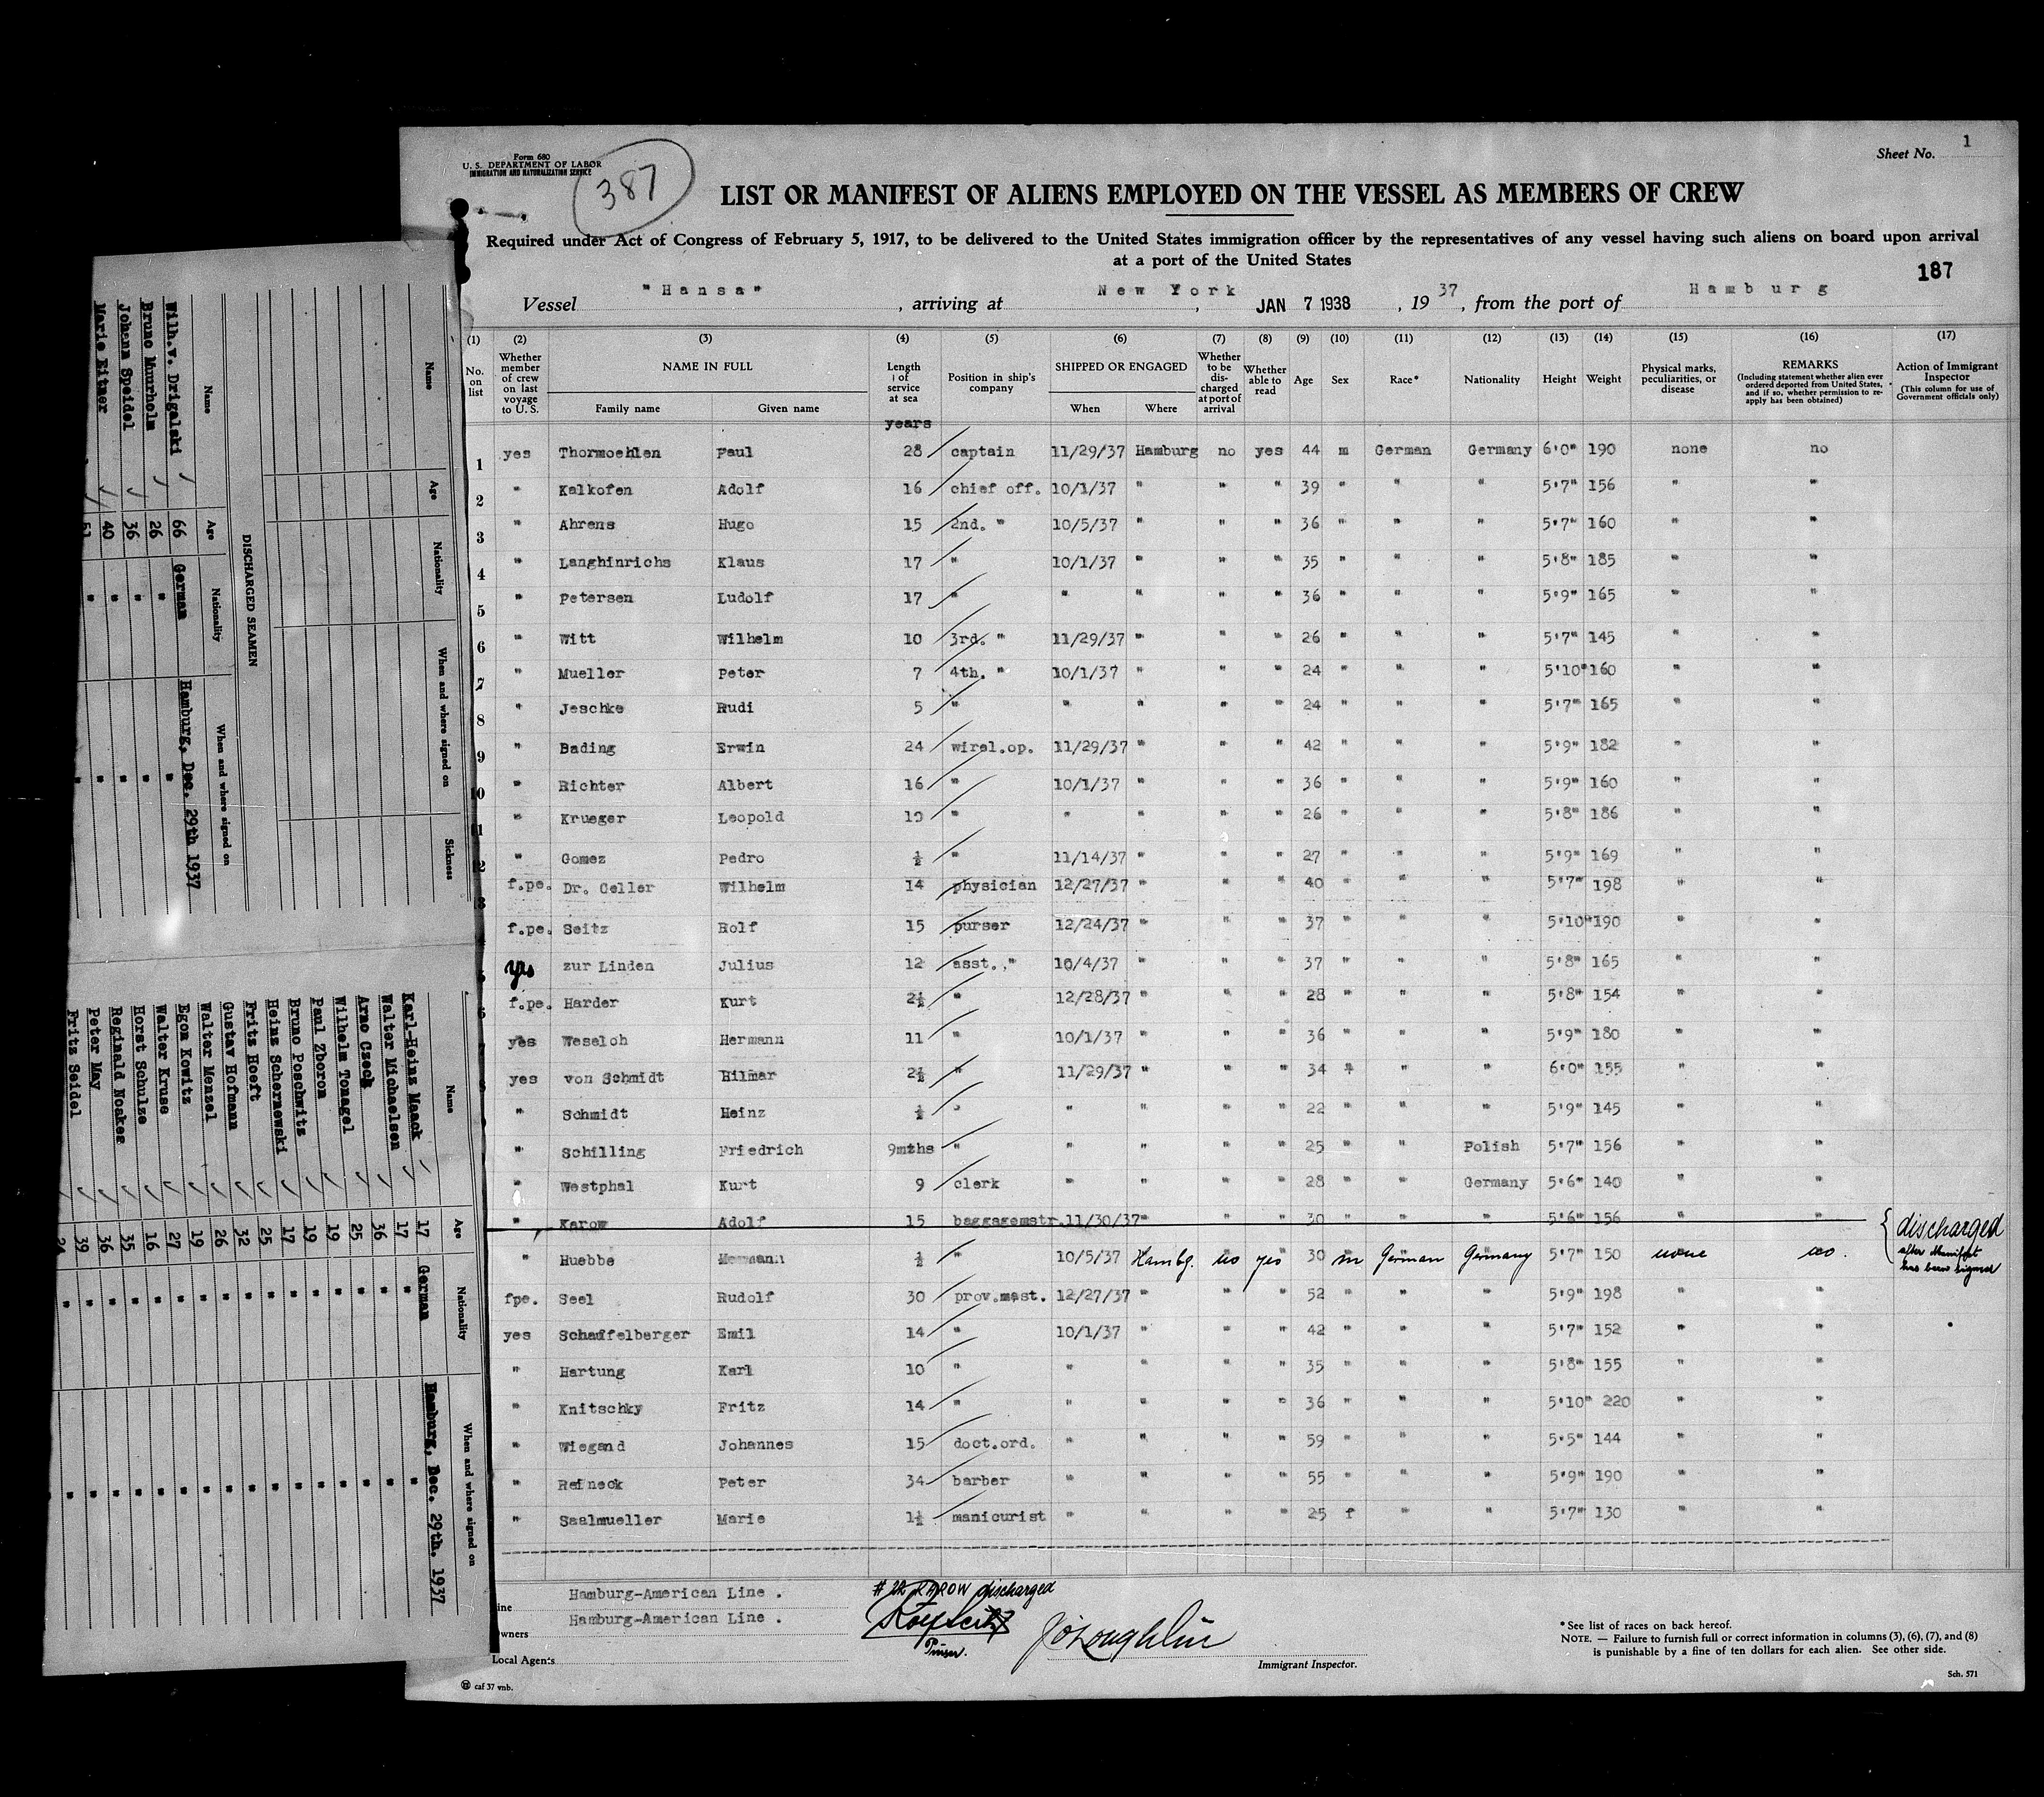 Form 680
U. S. DEPARTMENT OF LABOR
IMMIGRATION AND NATURALIZATION SERVICE
387
Sheet No. 1
LIST OR MANIFEST OF ALIENS EMPLOYED ON THE VESSEL AS MEMBERS OF CREW
Required under Act of Congress of February 5, 1917, to be delivered to the United States immigration officer by the representatives of any vessel having such aliens on board upon arrival
at a port of the United States
187
Vessel "Hansa", arriving at New York, JAN 7 1938, 1937, from the port of Hamburg
(1) (2) (3) (4) (5) (6) (7) (8) (9) (10) (11) (12) (13) (14) (15) (16) (17)
No. on list
Whether member of crew on last voyage to U. S.
NAME IN FULL
Family name Given name
Length of service at sea
years
Position in ship's company
SHIPPED OR ENGAGED
When Where
Whether to be discharged at port of arrival
Whether able to read
Age
Sex
Race*
Nationality
Height
Weight
Physical marks, peculiarities, or disease
REMARKS
(Including statement whether alien ever ordered deported from United States, and if so, whether permission to re-apply has been obtained)
Action of Immigrant Inspector
(This column for use of Government officials only)
1 yes Thormoehlen Paul 28 captain 11/29/37 Hamburg no yes 44 m German Germany 6'0" 190 none no
2 " Kalkofen Adolf 16 chief off. 10/1/37 " " " 39 " " " 5'7" 156 " "
3 " Ahrens Hugo 15 2nd. " 10/5/37 " " " 36 " " " 5'7" 160 " "
4 " Langhinrichs Klaus 17 " 10/1/37 " " " 35 " " " 5'8" 185 " "
5 " Petersen Ludolf 17 " " " " " 36 " " " 5'9" 165 " "
6 " Witt Wilhelm 10 3rd. " 11/29/37 " " " 26 " " " 5'7" 145 " "
7 " Mueller Peter 7 4th. " 10/1/37 " " " 24 " " " 5'10" 160 " "
8 " Jeschke Rudi 5 " " " " " 24 " " " 5'7" 165 " "
9 " Bading Erwin 24 wirel.op. 11/29/37 " " " 42 " " " 5'9" 182 " "
10 " Richter Albert 16 " 10/1/37 " " " 36 " " " 5'9" 160 " "
1 " Krueger Leopold " " " " " 26 " " " 5'8" 186 " "
2 " Gomez Pedro ½ " 11/14/37 " " " 27 " " " 5'9" 169 " "
f.pe. Dr. Celler Wilhelm 14 physician 12/27/37 " " " 40 " " " 5'7" 198 " "
f.pe. Seitz Rolf 15 purser 12/24/37 " " " 37 " " " 5'10" 190 " "
yes zur Linden Julius 12 asst. " 10/4/37 " " " 37 " " " 5'8" 165 " "
f.pe. Harder Kurt 2½ " 12/28/37 " " " 28 " " " 5'8" 154 " "
yes Weseloh Hermann 11 " 10/1/37 " " " 36 " " " 5'9" 180 " "
yes von Schmidt Hilmar 2½ " 11/29/37 " " " 34 " " " 6'0" 155 " "
" Schmidt Heinz ½ " " " " " 22 " " " 5'9" 145 " "
" Schilling Friedrich 9mths " " " " " 25 " " Polish 5'7" 156 " "
" Westphal Kurt 9 clerk " " " " 28 " " Germany 5'6" 140 " "
" Karow Adolf 15 baggagemstr. 11/30/37 " " " 30 " " " 5'6" 156 " " discharged after Manifest has been signed
" Huebbe Hermann ½ " 10/5/37 Hambg. no yes 30 m German Germany 5'7" 150 none no.
fpe. Seel Rudolf 30 prov.mast. 12/27/37 " " " 52 " " " 5'9" 198 " "
yes Schauffelberger Emil 14 " 10/1/37 " " " 42 " " " 5'7" 152 " "
" Hartung Karl 10 " " " " " 35 " " " 5'8" 155 " "
" Knitschky Fritz 14 " " " " " 36 " " " 5'10" 220 " "
" Wiegand Johannes 15 doct.ord. " " " " 59 " " " 5'5" 144 " "
" Reineck Peter 34 barber " " " " 55 " " " 5'9" 190 " "
" Saalmueller Marie 1½ manicurist " " " " 25 f " " 5'7" 130 " "
Hamburg-American Line .
Owners Hamburg-American Line .
Local Agents
# 22 KAROW discharged
Rolf Seitz
Purser.
J O'Loughlin
Immigrant Inspector.
* See list of races on back hereof.
NOTE. — Failure to furnish full or correct information in columns (3), (6), (7), and (8)
is punishable by a fine of ten dollars for each alien. See other side.
Sch. 571
caf 37 vnb.
Name Age Nationality When and where signed on Sickness
DISCHARGED SEAMEN
Name Age Nationality When and where signed on
Wilh.v. Drigalski 66 German Hamburg, Dec. 29th 1937
Bruno Muurholm 26 " "
Johann Speidel 36 " "
Marie Eitner 40 " "
Name Age Nationality When and where signed on
Karl-Heinz Maack 17 German Hamburg, Dec. 29th. 1937
Walter Michaelsen 17 " "
Arno Czeck 36 " "
Wilhelm Tonagel 25 " "
Paul Zboron 19 " "
Bruno Poschwitz 19 " "
Heinz Schernewski 17 " "
Fritz Hoeft 25 " "
Gustav Hofmann 32 " "
Walter Menzel 26 " "
Egon Kowitz 19 " "
Walter Kruse 27 " "
Horst Schulze 16 " "
Reginald Noakes 35 " "
Peter May 36 " "
Fritz Seidel 39 " "